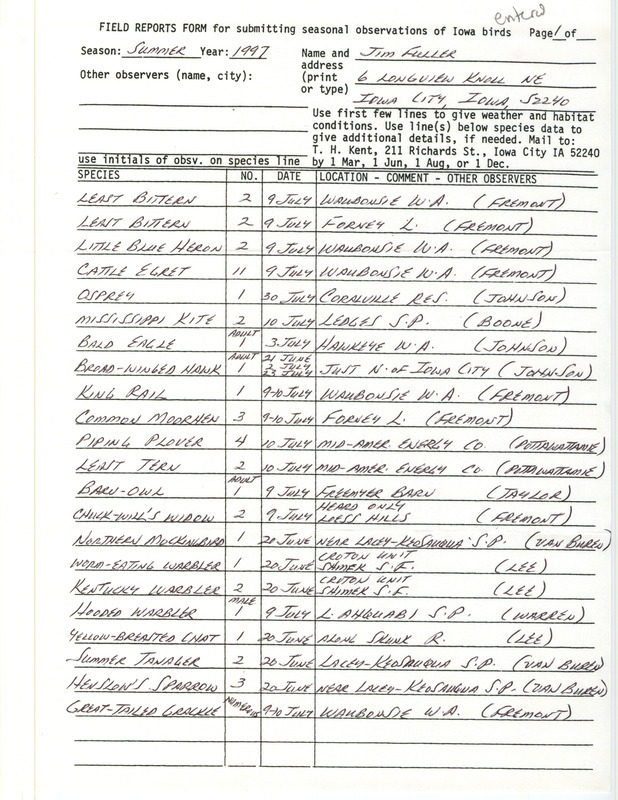 entered
FIELD REPORTS FORM for submitting seasonal observations of Iowa birds Page 1 of
Season: Summer Year: 1997 Name and Jim Fuller
address
Other observers (name, city): (print 6 Longview Knoll NE
or type) Iowa City, Iowa, 52240
Use first few lines to give weather and habitat
conditions. Use line(s) below species data to
give additional details, if needed. Mail to:
T. H. Kent, 211 Richards St., Iowa City IA 52240
use initials of obsv. on species line by 1 Mar, 1 Jun, 1 Aug, or 1 Dec.
SPECIES NO. DATE LOCATION - COMMENT - OTHER OBSERVERS
Least Bittern 2 9 July Waubonsie W.A. (Fremont)
Least Bittern 2 9 July Forney L. (Fremont)
Little Blue Heron 2 9 July Waubonsie W.A. (Fremont)
Cattle Egret 11 9 July Waubonsie W.A. (Fremont)
Osprey 1 30 July Coralville Res. (Johnson)
Mississippi Kite 2 10 July Ledges S.P. (Boone)
Bald Eagle Adult 1 3 July Hawkeye W.A. (Johnson)
Broad-winged Hawk Adult 1 21 June 2 July 23 July Just N. of Iowa City (Johnson)
King Rail 1 9-10 July Waubonsie W.A. (Fremont)
Common Moorhen 3 9-10 July Forney L. (Fremont)
Piping Plover 4 10 July Mid-Amer. Energy Co. (Pottawattamie)
Least Tern 2 10 July Mid-Amer. Energy Co. (Pottawattamie)
Barn-Owl Adult 1 9 July Freemyer Barn (Taylor)
Chuck-will's Widow 2 9 July Heard only Loess Hills (Fremont)
Northern Mockingbird 1 20 June Near Lacey-Keosauqua S.P. (Van Buren)
Worm-eating Warbler 1 20 June Croton Unit Shimek S.F. (Lee)
Kentucky Warbler 2 20 June Croton Unit Shimek S.F. (Lee)
Hooded Warbler Male 1 9 July L. Ahquabi S.P. (Warren)
Yellow-breasted Chat 1 20 June Along Skunk R. (Lee)
Summer Tanager 2 20 June Lacey-Keosauqua S.P. (Van Buren)
Henslow's Sparrow 3 20 June Near Lacey-Keosauqua S.P. (Van Buren)
Great-tailed Grackle Numerous 9-10 July Waubonsie W.A. (Fremont)